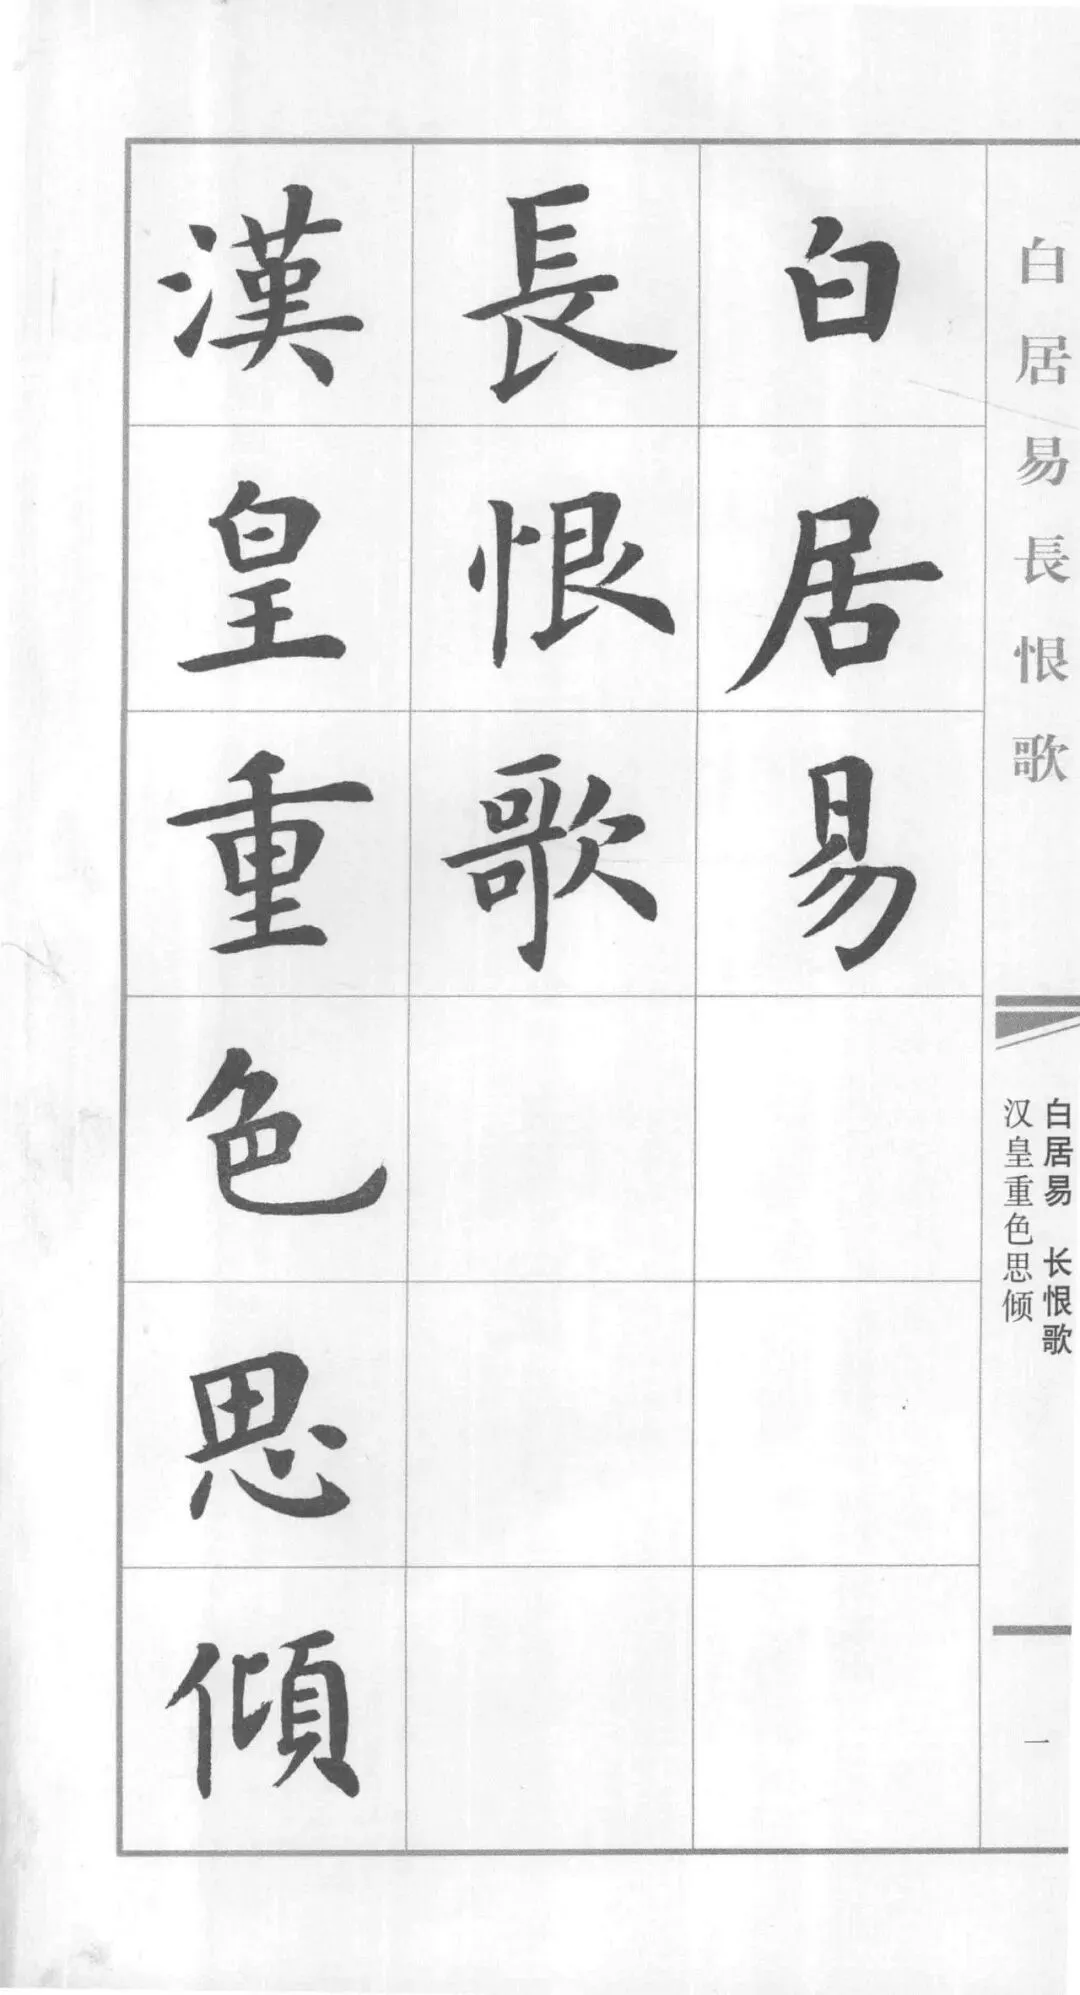 白居易長恨歌
白居易 长恨歌
汉皇重色思倾
一
白居易
長恨歌
漢皇重色思傾